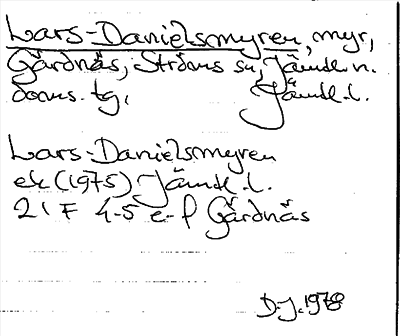 Lars-Danielsmyren, myr,
Gårdnäs, Ströms sn, Jämtl. n.
doms. tg, Jämtl. l.
Lars-Danielsmyren
ek (1975) Jämtl. l.
21 F 4-5 e-f Gårdnäs
D.J. 1978